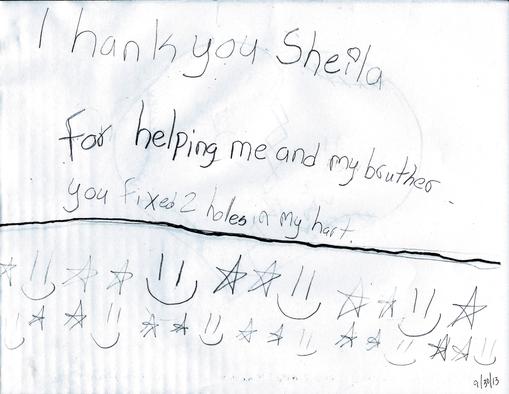 Thank you Sheila
for helping me and my bruther.
you fixed 2 holes in my hart.
9/30/13